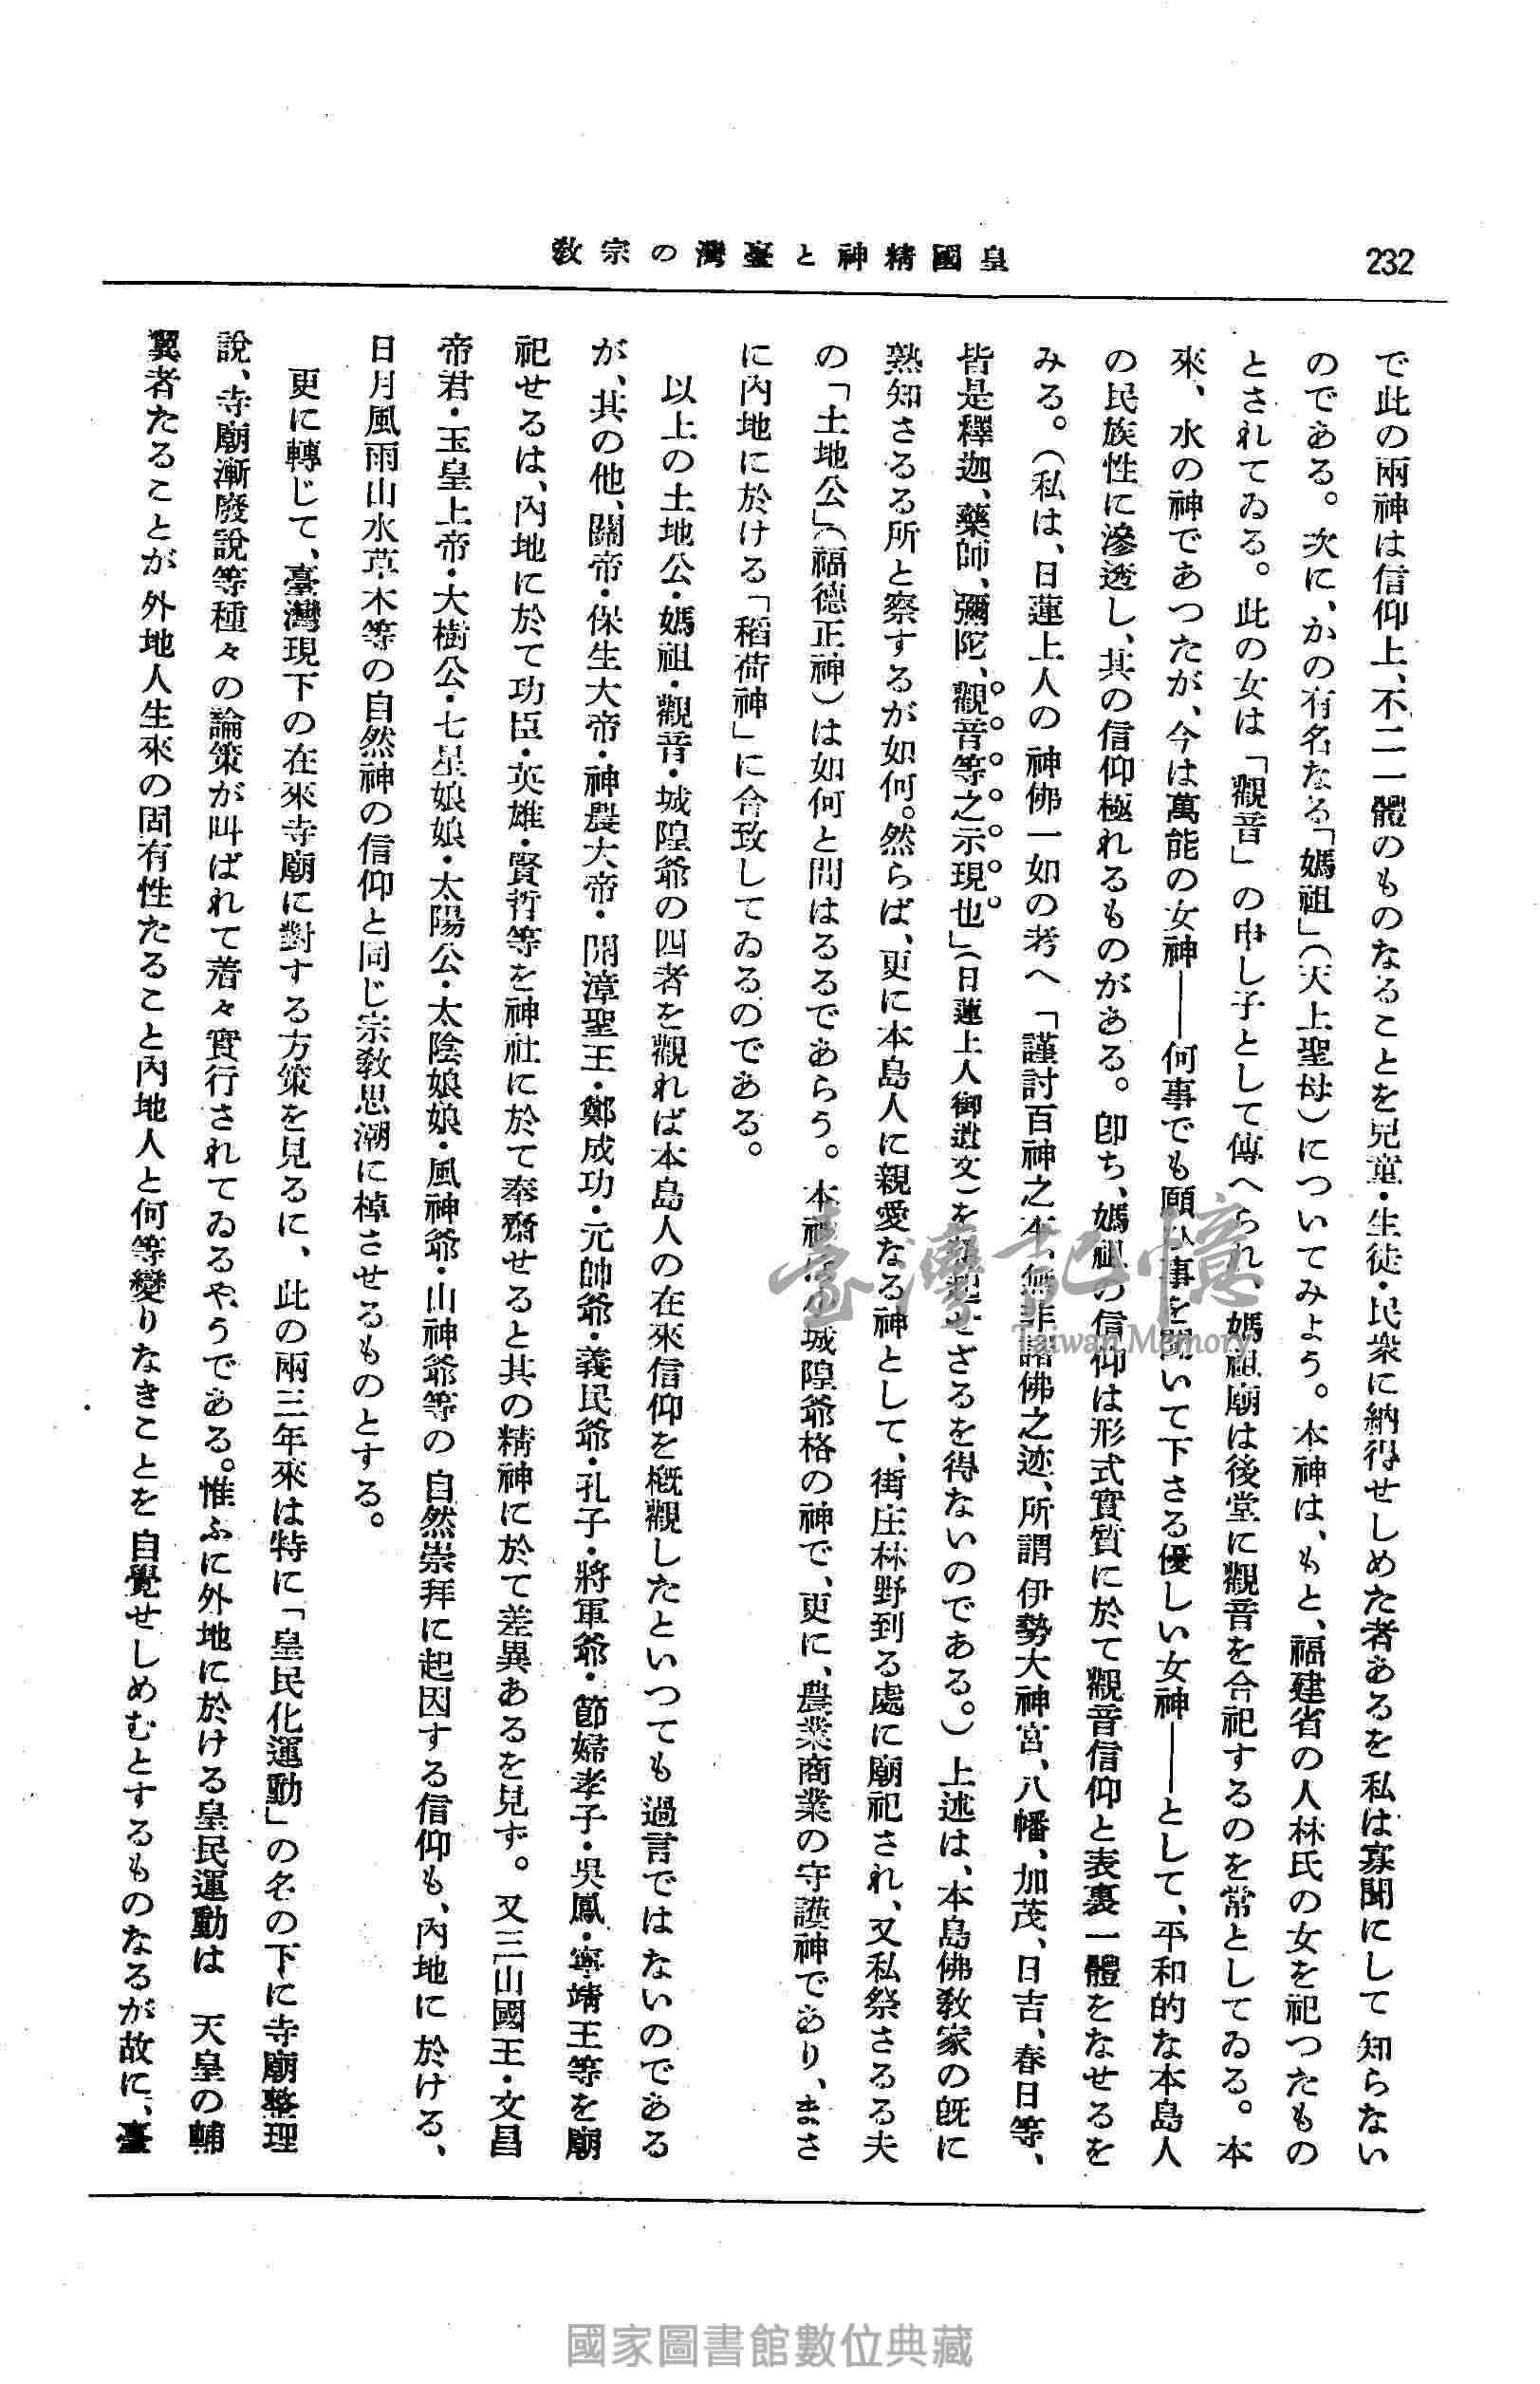 232
皇國精神と臺灣の宗教
で此の兩神は信仰上、不二一體のものなることを兒童・生徒・民衆に納得せしめた者あるを私は寡聞にして知らない
のである。次に、かの有名なる「媽祖」（天上聖母）についてみよう。本神は、もと、福建省の人林氏の女を祀つたもの
とされてゐる。此の女は「觀音」の申し子として傳へられ、媽祖廟は後堂に觀音を合祀するのを常としてゐる。本
來、水の神であつたが、今は萬能の女神――何事でも願ひ事を聞いて下さる優しい女神――として、平和的な本島人
の民族性に滲透し、其の信仰極れるものがある。卽ち、媽祖の信仰は形式實質に於て觀音信仰と表裏一體をなせるを
みる。（私は、日蓮上人の神佛一如の考へ「謹討百神之本、無非諸佛之迹、所謂伊勢大神宮、八幡、加茂、日吉、春日等、
皆是釋迦、藥師、彌陀、觀音等之示現也」（日蓮上人御遺文）をせざるを得ないのである。）上述は、本島佛敎家の旣に
熟知さるる所と察するが如何。然らば、更に本島人に親愛なる神として、街庄林野到る處に廟祀され、又私祭さるる夫
の「土地公」（福德正神）は如何と問はるるであらう。本神は小城隍爺格の神で、更に、農業商業の守護神であり、まさ
に內地に於ける「稻荷神」に合致してゐるのである。
以上の土地公・媽祖・觀音・城隍爺の四者を觀れば本島人の在來信仰を槪觀したといつても過言ではないのである
が、其の他、關帝・保生大帝・神農大帝・開漳聖王・鄭成功・元帥爺・義民爺・孔子・將軍爺・節婦孝子・吳鳳・寧靖王等を廟
祀せるは、內地に於て功臣・英雄・賢哲等を神社に於て奉齋せると其の精神に於て差異あるを見ず。又三山國王・文昌
帝君・玉皇上帝・大樹公・七星娘娘・太陽公・太陰娘娘・風神爺・山神爺等の自然崇拜に起因する信仰も、內地に於ける、
日月風雨山水草木等の自然神の信仰と同じ宗敎思潮に棹させるものとする。
更に轉じて、臺灣現下の在來寺廟に對する方策を見るに、此の兩三年來は特に「皇民化運動」の名の下に寺廟整理
說、寺廟漸廢說等種々の論策が叫ばれて着々實行されてゐるやうである。惟ふに外地に於ける皇民運動は　天皇の輔
翼者たることが外地人生來の固有性たること內地人と何等變りなきことを自覺せしめむとするものなるが故に、臺
臺灣記憶
Taiwan Memory
國家圖書館數位典藏